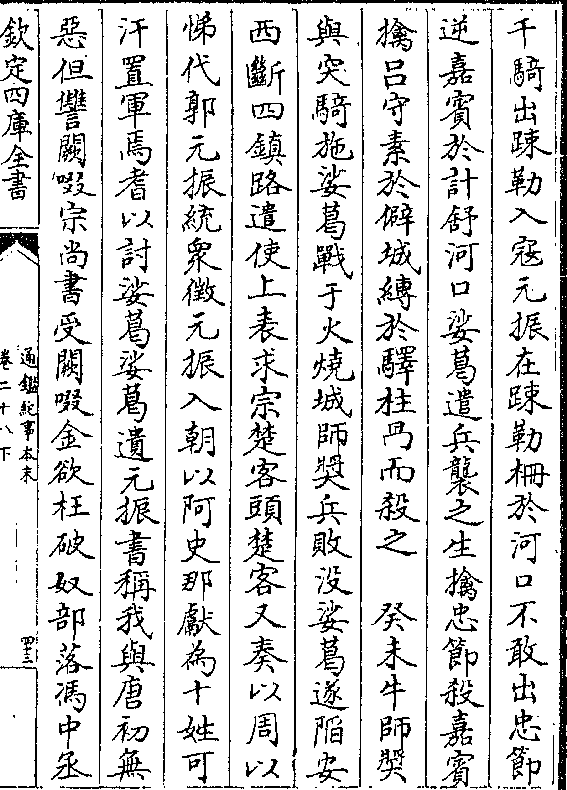 千騎出踈勒入冦元振在踈勒柵於河口不敢出忠節
逆嘉賔於計舒河口娑葛遣兵襲之生擒忠節殺嘉賔
擒吕守素於僻城縛於驛柱冎而殺之　癸未牛師奬
與突騎施娑葛戰于火燒城師奬兵敗没娑葛遂䧟安
西斷四鎮路遣使上表求宗楚客頭楚客又奏以周以
悌代郭元振統衆徵元振入朝以阿史那獻為十姓可
汗置軍焉耆以討娑葛娑葛遺元振書稱我與唐初無
惡但讐闕啜宗尚書受闕啜金欲枉破奴部落馮中丞
欽定四庫全書
通鑑紀事本末
卷二十八下
四三